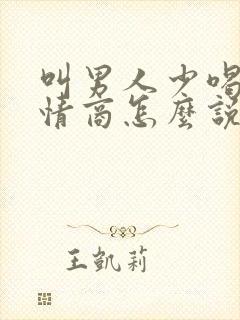 叫男人少喝
情商怎麼說
王凱莉